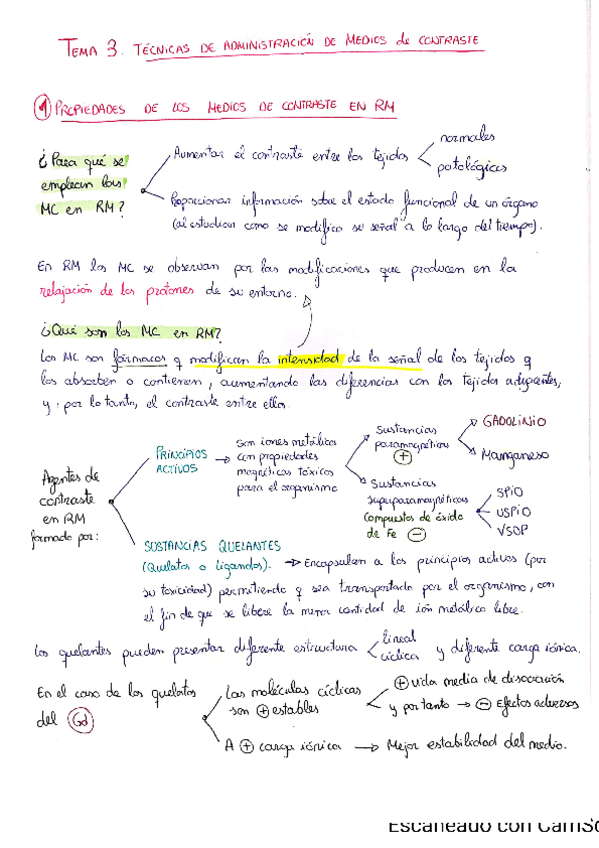 TEMA 3. TÉCNICAS DE ADMINISTRACIÓN DE MEDIOS de CONTRASTE
① PROPIEDADES DE LOS MEDIOS DE CONTRASTE EN RM
¿Para qué se emplean los MC en RM?
Aumentar el contraste entre los tejidos
normales
patológicos
Proporcionar información sobre el estado funcional de un órgano
(al estudiar como se modifica su señal a lo largo del tiempo).
En RM los MC se observan por las modificaciones que producen en la
relajación de los protones de su entorno.
¿Qué son los MC en RM?
Los MC son fármacos q modifican la intensidad de la señal de los tejidos q
los absorben o contienen, aumentando las diferencias con los tejidos adyacentes,
y, por lo tanto, el contraste entre ellos.
Agentes de
contraste
en RM
formado por:
PRINCIPIOS
ACTIVOS
son iones metálicos
con propiedades
magnéticas tóxicos
para el organismo
Sustancias
paramagnéticas
+
GADOLINIO
Manganeso
Sustancias
superparamagnéticas
Compuestos de óxido
de Fe -
SPIO
USPIO
VSOP
SUSTANCIAS QUELANTES
(Quelatos o ligandos). → Encapsulan a los principios activos (por
su toxicidad) permitiendo q sea transportado por el organismo, con
el fin de que se libere la menor cantidad de ión metálico libre.
Los quelantes pueden presentar diferente estructura
lineal
cíclica
y diferente carga iónica.
En el caso de los quelatos
del Gd
Las moléculas cíclicas
son + estables
+ vida media de disociación
y por tanto → - Efectos adversos
A + carga iónica → Mejor estabilidad del medio.
Escaneado con CamSc